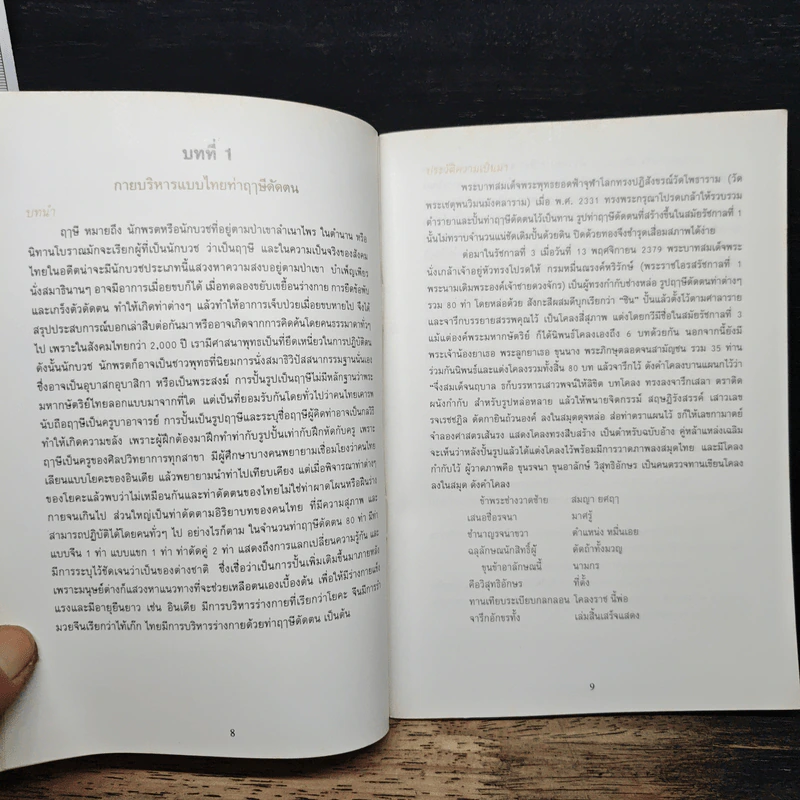 บทที่ 1
กายบริหารแบบไทยท่าฤๅษีดัดตน
บทนำ
ฤๅษี หมายถึง นักพรตหรือนักบวชที่อยู่ตามป่าเขาลำเนาไพร ในตำนาน หรือ
นิทานโบราณมักจะเรียกผู้ที่เป็นนักบวช ว่าเป็นฤๅษี และในความเป็นจริงของสังคม
ไทยในอดีตน่าจะมีนักบวชประเภทนี้แสวงหาความสงบอยู่ตามป่าเขา บำเพ็ญเพียร
นั่งสมาธินานๆ อาจมีอาการเมื่อยขบก็ได้ เมื่อทดลองขยับเขยื้อนร่างกาย การยืดข้อพับ
และเกร็งตัวดัดตน ทำให้เกิดท่าต่างๆ แล้วทำให้อาการเจ็บป่วยเมื่อยขบหายไป จึงได้
สรุปประสบการณ์บอกเล่าสืบต่อกันมา หรืออาจเกิดจากการคิดค้นโดยคนธรรมดาทั่วๆ
ไป เพราะในสังคมไทยกว่า 2,000 ปี เรามีศาสนาพุทธเป็นที่ยึดเหนี่ยวในการปฏิบัติตน
ดังนั้นนักบวช นักพรตก็อาจเป็นชาวพุทธที่นิยมการนั่งสมาธิวิปัสสนากรรมฐานนั่นเอง
ซึ่งอาจเป็นอุบาสกอุบาสิกา หรือเป็นพระสงฆ์ การปั้นรูปเป็นฤๅษีไม่มีหลักฐานว่าพระ
มหากษัตริย์ไทยลอกแบบมาจากที่ใด แต่เป็นที่ยอมรับกันโดยทั่วไปว่าคนไทยเคารพ
นับถือฤๅษีเป็นครูบาอาจารย์ การปั้นเป็นรูปฤๅษีและระบุชื่อฤๅษีผู้คิดท่าอาจเป็นกลวิธี
ทำให้เกิดความขลัง เพราะผู้ฝึกต้องมาฝึกทำท่ากับรูปปั้นเท่ากับฝึกหัดกับครู เพราะ
ฤๅษีเป็นครูของศิลปวิทยาการทุกสาขา มีผู้ศึกษาบางคนพยายามเชื่อมโยงว่าคนไทย
เลียนแบบโยคะของอินเดีย แล้วพยายามนำท่าไปเทียบเคียง แต่เมื่อพิจารณาท่าต่างๆ
ของโยคะแล้วพบว่าไม่เหมือนกันและท่าดัดตนของไทยไม่ใช่ท่าผาดโผนหรือฝืนร่าง
กายจนเกินไป ส่วนใหญ่เป็นท่าดัดตามอิริยาบทของคนไทย ที่มีความสุภาพ และ
สามารถปฏิบัติได้โดยคนทั่วๆ ไป อย่างไรก็ตาม ในจำนวนท่าฤๅษีดัดตน 80 ท่า มีท่า
แบบจีน 1 ท่า แบบแขก 1 ท่า ท่าดัดคู่ 2 ท่า แสดงถึงการแลกเปลี่ยนความรู้กัน และ
มีการระบุไว้ชัดเจนว่าเป็นของต่างชาติ ซึ่งเชื่อว่าเป็นการปั้นเพิ่มเติมขึ้นมาภายหลัง
เพราะมนุษย์ต่างก็แสวงหาแนวทางที่จะช่วยเหลือตนเองเบื้องต้น เพื่อให้มีร่างกายแข็ง
แรงและมีอายุยืนยาว เช่น อินเดีย มีการบริหารร่างกายที่เรียกว่าโยคะ จีนมีการรำ
มวยจีนเรียกว่าไท้เก๊ก ไทยมีการบริหารร่างกายด้วยท่าฤๅษีดัดตน เป็นต้น
8
พระบาทสมเด็จพระพุทธยอดฟ้าจุฬาโลกทรงปฏิสังขรณ์วัดโพธาราม (วัด
พระเชตุพนวิมนมังคลาราม) เมื่อ พ.ศ. 2331 ทรงพระกรุณาโปรดเกล้าให้รวบรวม
ตำรายาและปั้นท่าฤๅษีดัดตนไว้เป็นทาน รูปท่าฤๅษีดัดตนที่สร้างขึ้นในสมัยรัชกาลที่ 1
นั้นไม่ทราบจำนวนแน่ชัดเดิมปั้นด้วยดิน ปิดด้วยทองจึงชำรุดเสื่อมสภาพได้ง่าย
ต่อมาในรัชกาลที่ 3 เมื่อวันที่ 13 พฤศจิกายน 2379 พระบาทสมเด็จพระ
นั่งเกล้าเจ้าอยู่หัวทรงโปรดให้ กรมหมื่นณรงค์หริรักษ์ (พระราชโอรสรัชกาลที่ 1
พระนามเดิมพระองค์เจ้าชายดวงจักร) เป็นผู้ทรงกำกับช่างหล่อ รูปฤๅษีดัดตนท่าต่างๆ
รวม 80 ท่า โดยหล่อด้วย สังกะสีผสมดีบุกเรียกว่า "ชิน" ปั้นแล้วตั้งไว้ตามศาลาราย
และจารึกบรรยายสรรพคุณไว้ เป็นโคลงสี่สุภาพ แต่งโดยกวีมีชื่อในสมัยรัชกาลที่ 3
แม้แต่องค์พระมหากษัตริย์ ก็ได้นิพนธ์โคลงเองถึง 6 บทด้วยกัน นอกจากนี้ยังมี
พระเจ้าน้องยาเธอ พระลูกยาเธอ ขุนนาง พระภิกษุตลอดจนสามัญชน รวม 35 ท่าน
ร่วมกันนิพนธ์และแต่งโคลงรวมทั้งสิ้น 80 บท แล้วจารึกไว้ ดังคำโคลงบานแผนกไว้ว่า
ผนังกำกับไว้ สำหรับรูปหล่อหลาย แล้วให้พนายจิตกรรมม์ สฤษฎิรังสรรค์ เสาวเลข
จะเห็นว่าหลังปั้นรูปแล้วได้แต่งโคลงไว้พร้อมมีการวาดภาพลงสมุดไทย และมีโคลง
กำกับไว้ ผู้วาดภาพคือ ขุนรจนา ขุนอาลักษ์ วิสุทธิอักษร เป็นคนตรวจทานเขียนโคลง
ลงในสมุด ดังคำโคลง
ข้าพระช่างวาดซ้าย สมญา ยศฤๅ
เสนอชื่อรจนา มาศรู้
ชำนาญรจนาขวา ตำแหน่ง หมื่นเอย
ฉลุลักษณนักสิทธิ์ผู้ ดัดถ้าทั้งมวญ
ขุนข้าอาลักษณ์นี้ นามกร
คือวิสุทธิอักษร ที่ตั้ง
ทานเทียบระเบียบกลกลอน โคลงราช นี้พ่อ
จารึกอักขรทั้ง เล่มสิ้นเสร็จแสดง
9